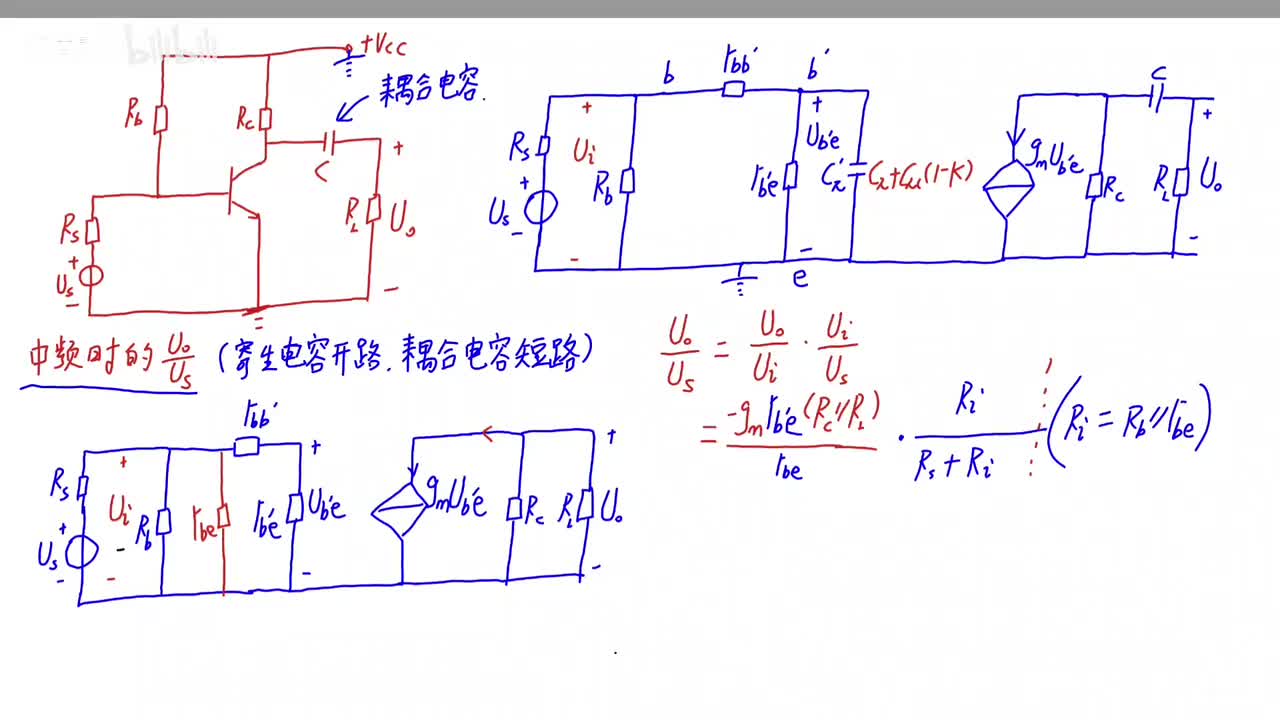 bilibili
+Vcc
耦合电容.
Rb
Rc
C
+
Rs
RL
Uo
+
Us
-
-
b
rbb'
b'
C
+
+
+
Rs
Ui
Rb
rb'e
Ub'e
Cπ'
Cπ+Cμ(1-K)
gmUb'e
Rc
RL
Uo
+
Us
-
-
-
e
-
中频时的 Uo/Us (寄生电容开路.耦合电容短路)
Uo/Us = Uo/Ui · Ui/Us
= -gm rb'e (Rc//RL) / rbe · Ri / (Rs+Ri) (Ri = Rb//rbe)
rbb'
+
+
+
Rs
Ui
Rb
rbe
rb'e
Ub'e
gmUb'e
Rc
RL
Uo
+
Us
-
-
-
-
-